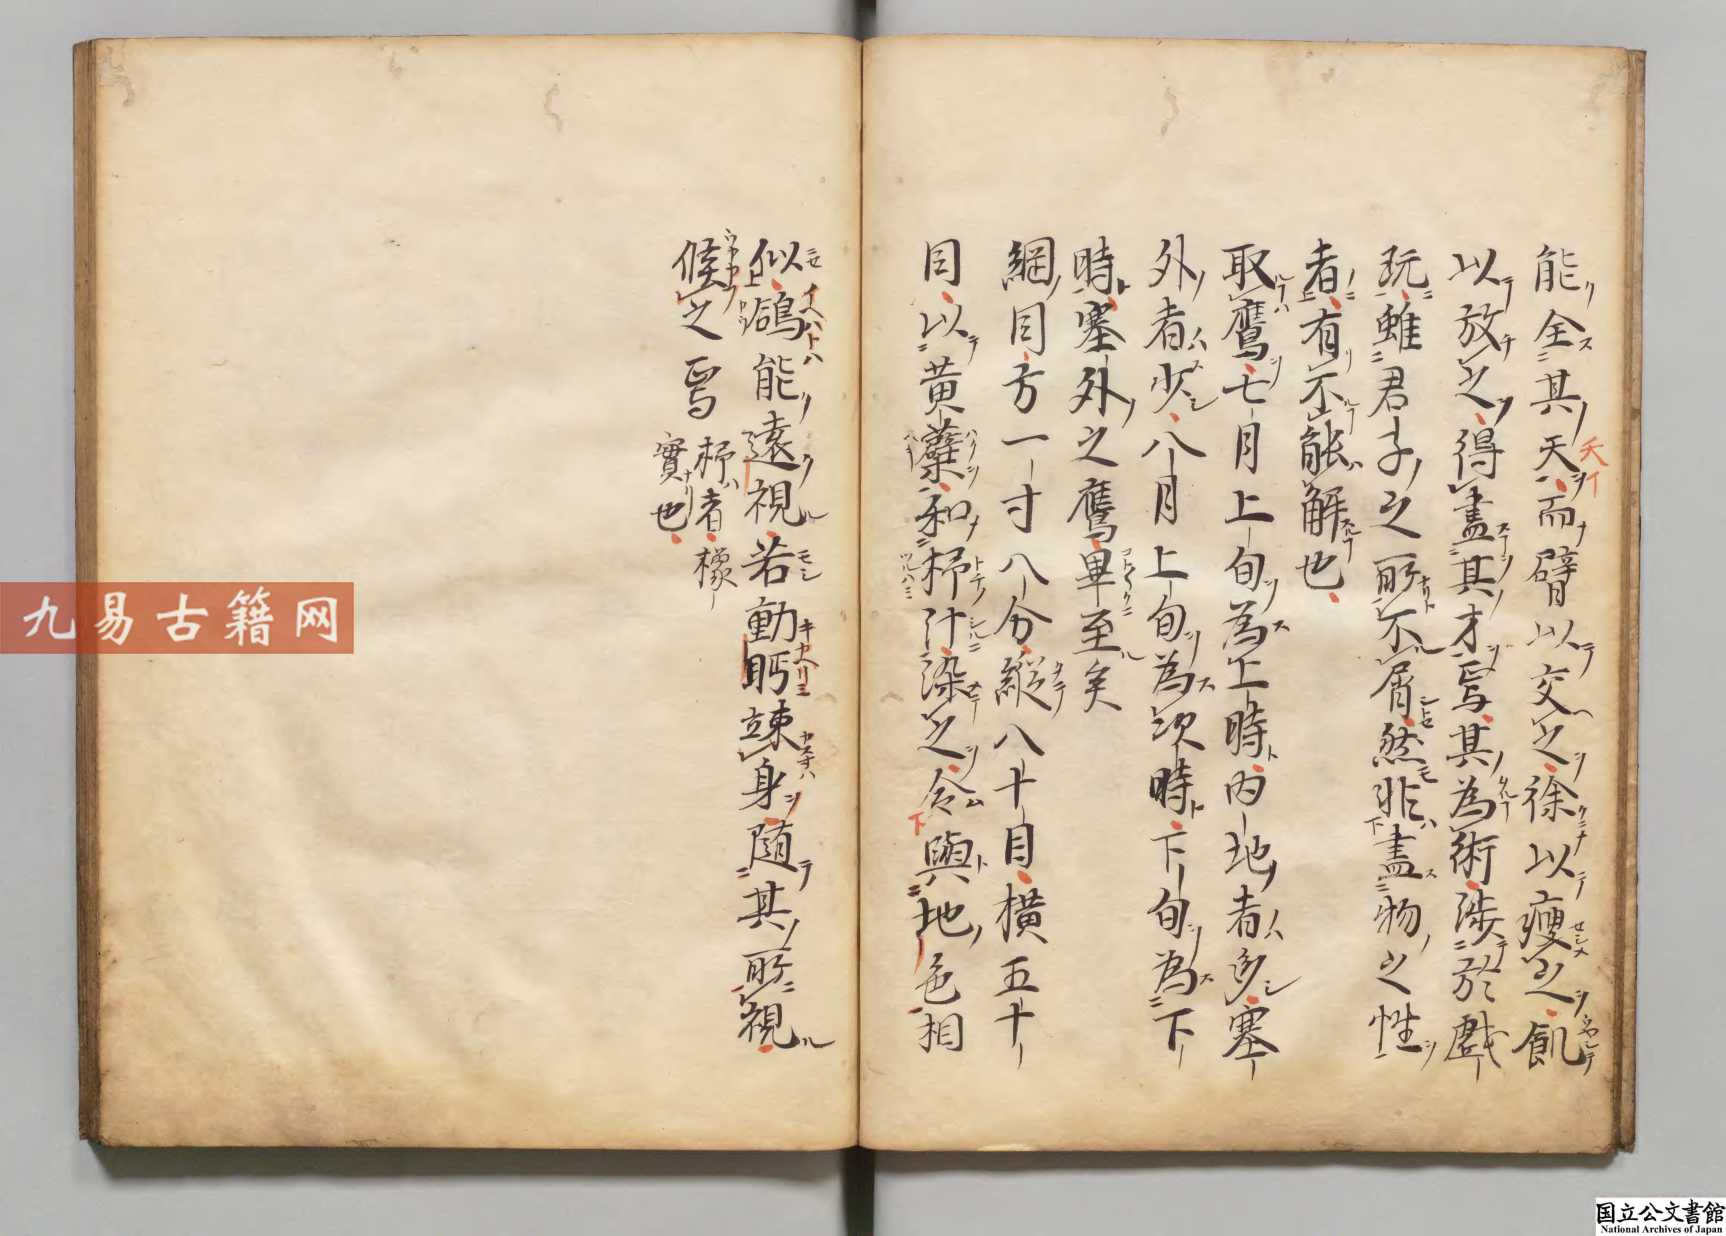 能全其天而臂以交之徐以瘦之飢
以放之得盡其才焉其為術渉於戲
玩雖君子之所不屑然非盡物之性
者有不能解也
取鷹七月上旬為上時内地者多塞
外者少八月上旬為次時下旬為下
時塞外之鷹畢至矣
網目方一寸八分縱八十目横五十
目以黄蘗和杼汁染之令與地色相
似鴿能遠視若動眄竦身随其所視
候之焉 杼者橡
實也
九易古籍网
国立公文書館
National Archives of Japan